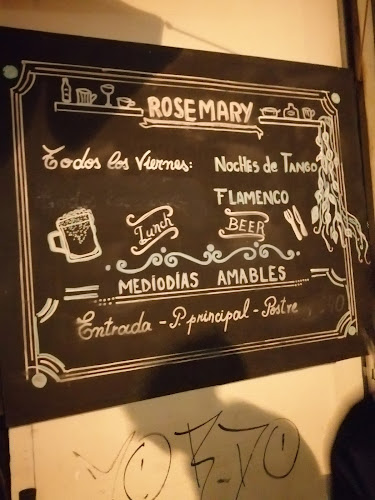 ROSEMARY
Todos los Viernes: NOCHES de TANGO
FLAMENCO
Lunch BEER
MEDIODÍAS AMABLES
Entrada - P. principal - Postre